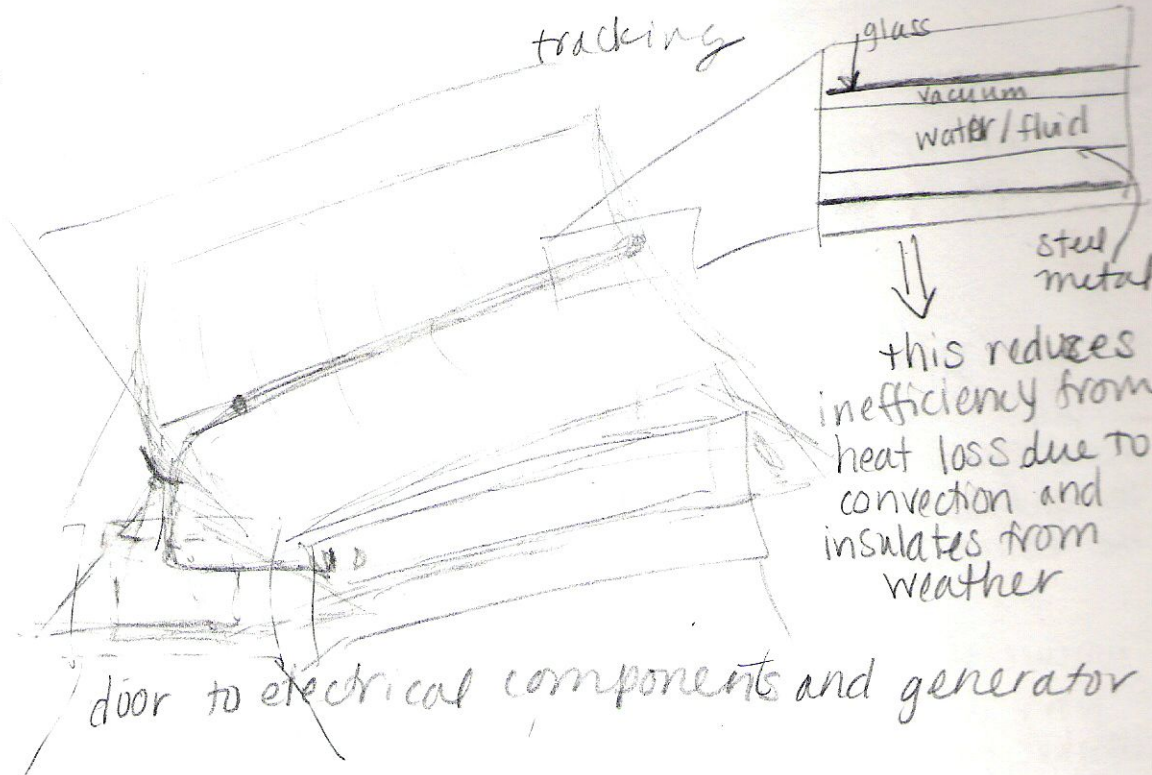 tracking
glass
vacuum
water/fluid
steel
metal
this reduces
inefficiency from
heat loss due to
convection and
insulates from
weather
door to electrical components and generator